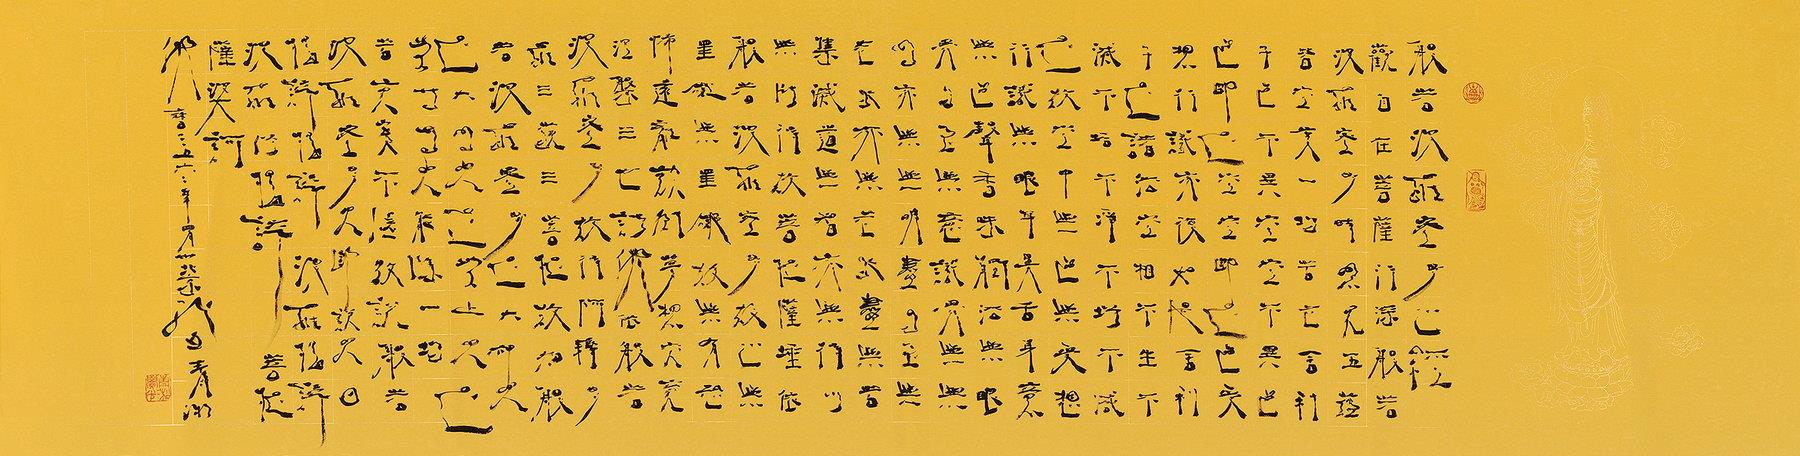 般若波羅蜜多心經
觀自在菩薩行深般若
波羅蜜多時照見五蘊
皆空度一切苦厄舍利
子色不異空空不異色
色即是空空即是色受
想行識亦復如是舍利
子是諸法空相不生不
滅不垢不淨不增不減
是故空中無色無受想
行識無眼耳鼻舌身意
無色聲香味觸法無眼
界乃至無意識界無無
明亦無無明盡乃至無
老死亦無老死盡無苦
集滅道無智亦無得以
無所得故菩提薩埵依
般若波羅蜜多故心無
罣礙無罣礙故無有恐
怖遠離顛倒夢想究竟
涅槃三世諸佛依般若
波羅蜜多故得阿耨多
羅三藐三菩提故知般
若波羅蜜多是大神咒
是大明咒是無上咒是
無等等咒能除一切
苦真實不虛故說般若
波羅蜜多咒即說咒曰
揭諦揭諦波羅揭諦
波羅僧揭諦菩提
薩婆訶
佛曆二五六二年